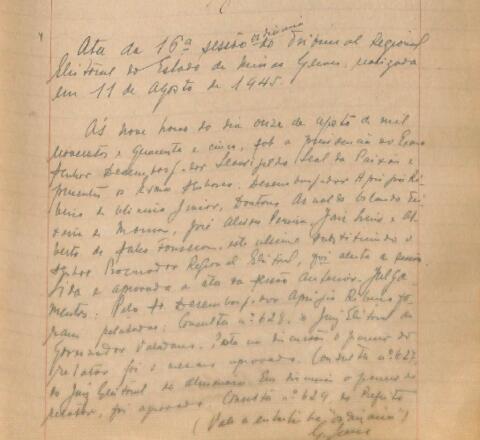 Ata da 16ª sessão ordinária do Tribunal Regional
Eleitoral do Estado de Minas Gerais, realizada
em 11 de Agosto de 1945.
Ás nove horas do dia onze de agosto de mil
novecentos e quarenta e cinco, sob a presidencia do Exmo
Senhor Desembargador Leal da Paixão e
presentes os exmos Senhores: Desembargador Aprigio Ri-
beiro de Oliveira Junior, Doutores Arnaldo
de Moura, José Alcides Pereira, José e Al-
berto da Fonseca, este ultimo substituindo o
Senhor Procurador Regional Eleitoral, foi aberta a sessão.
Lida e aprovada a ata da sessão anterior. Julga-
mentos: Pelo Sr Desembargador Aprigio Ribeiro fo-
ram relatadas: Consulta nº 628, do Juiz Eleitoral de
Governador Valadares. Posto em discussão o parecer do
relator foi o mesmo aprovado. Consulta nº 627,
do Juiz Eleitoral de Almenara. Em discussão o parecer do
relator, foi aprovado. Consulta nº 629, do Prefeito
(Vale a entrelinha "ordinária")